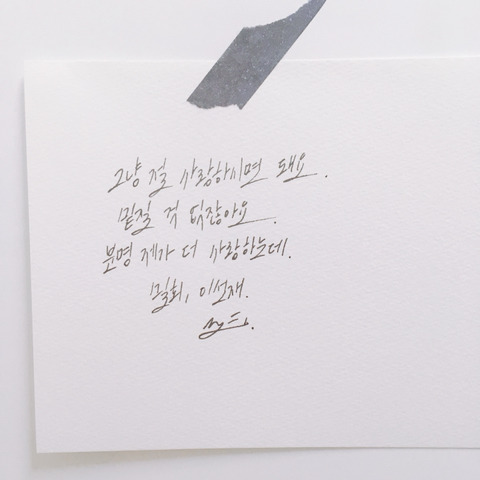 그냥 절 사랑하시면 돼요.
밑질 거 없잖아요.
분명 제가 더 사랑하는데.
밀회, 이선재.